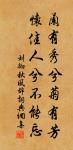 蘭有秀兮菊有芳
懷佳人兮不能忘
劉徹秋風辭詩典網